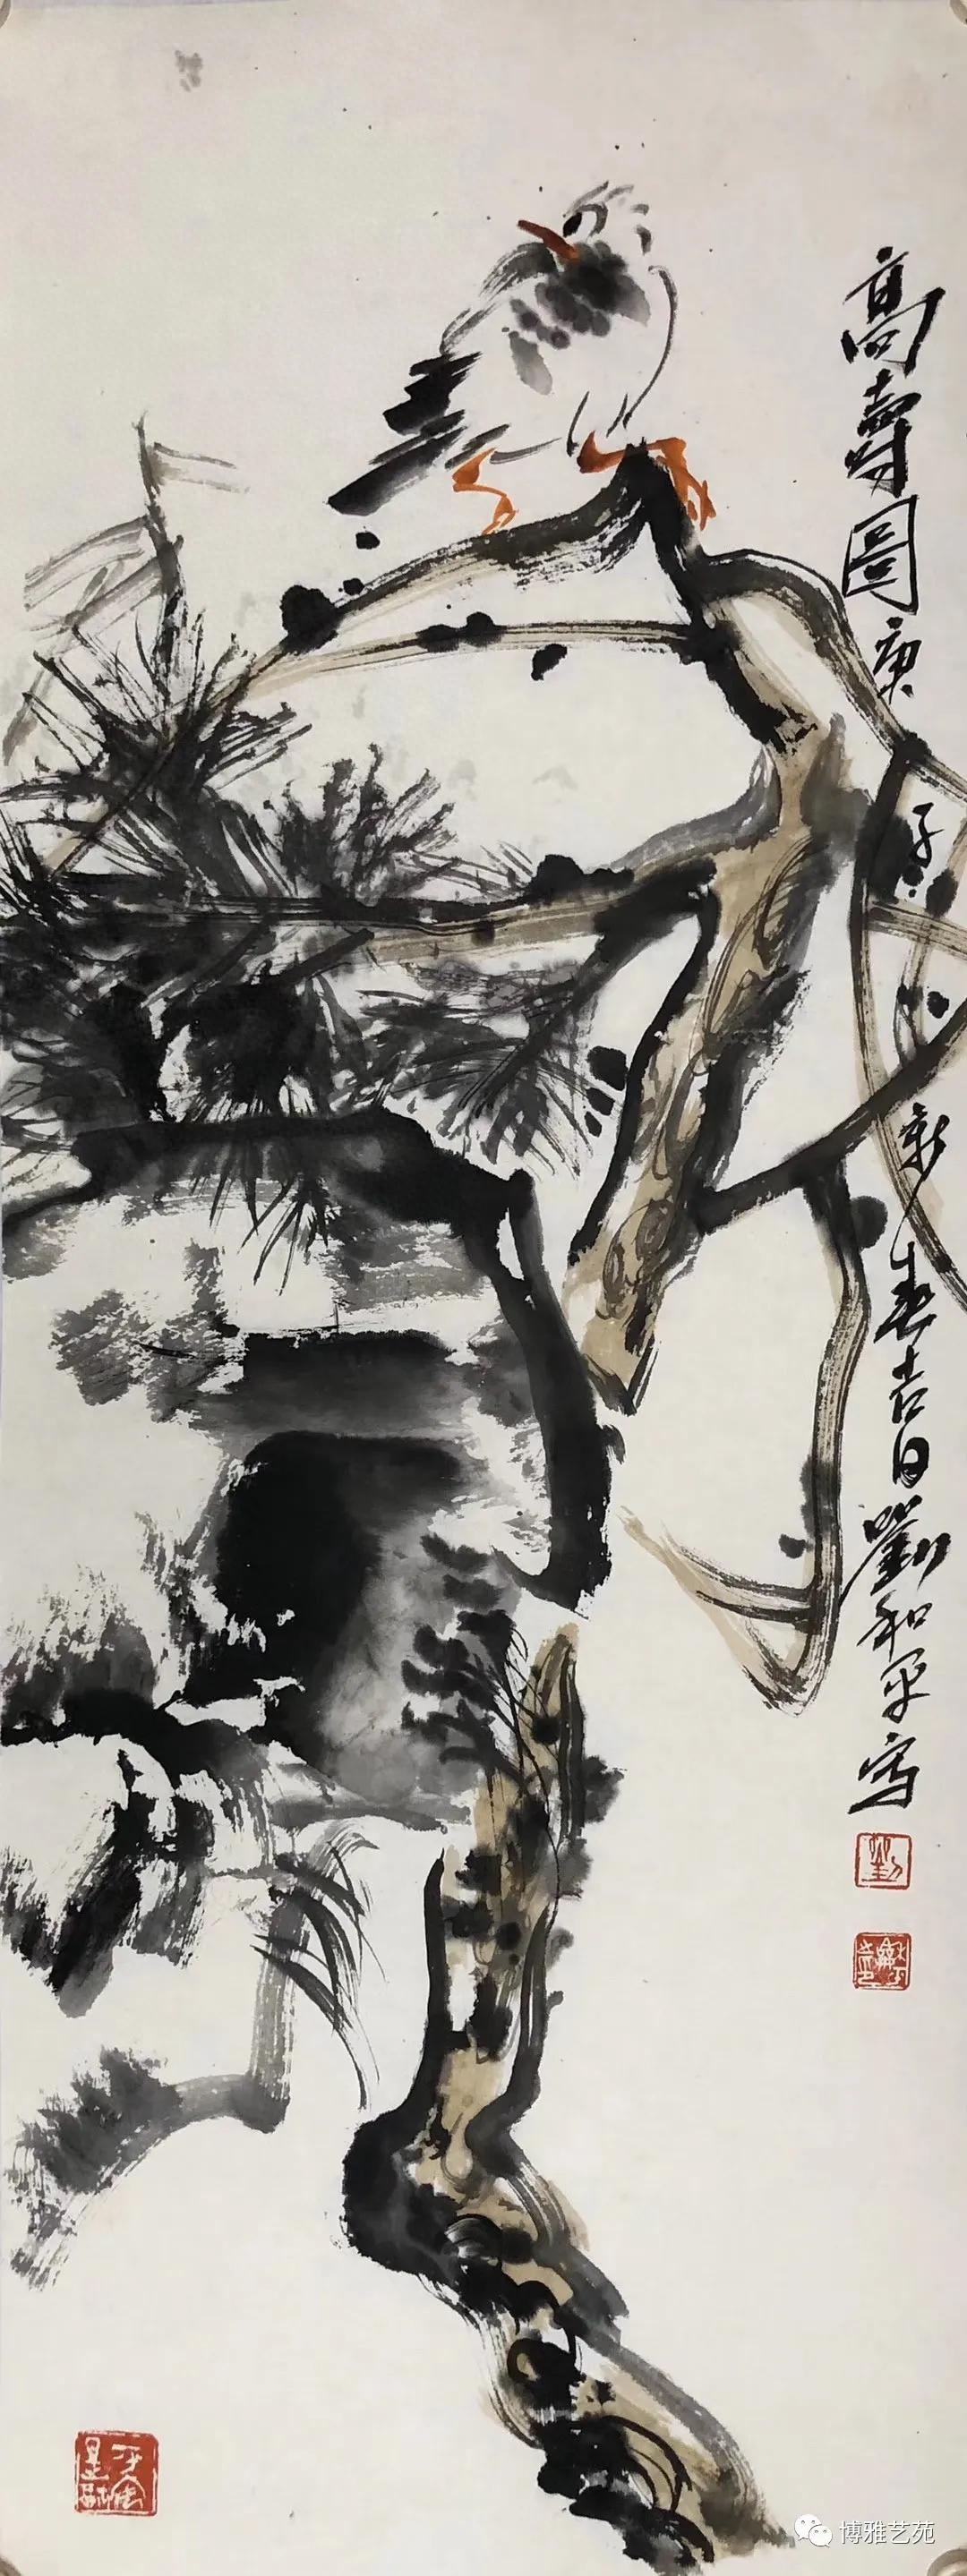 高壽圖庚子新春吉日劉和平寫
劉
博雅艺苑